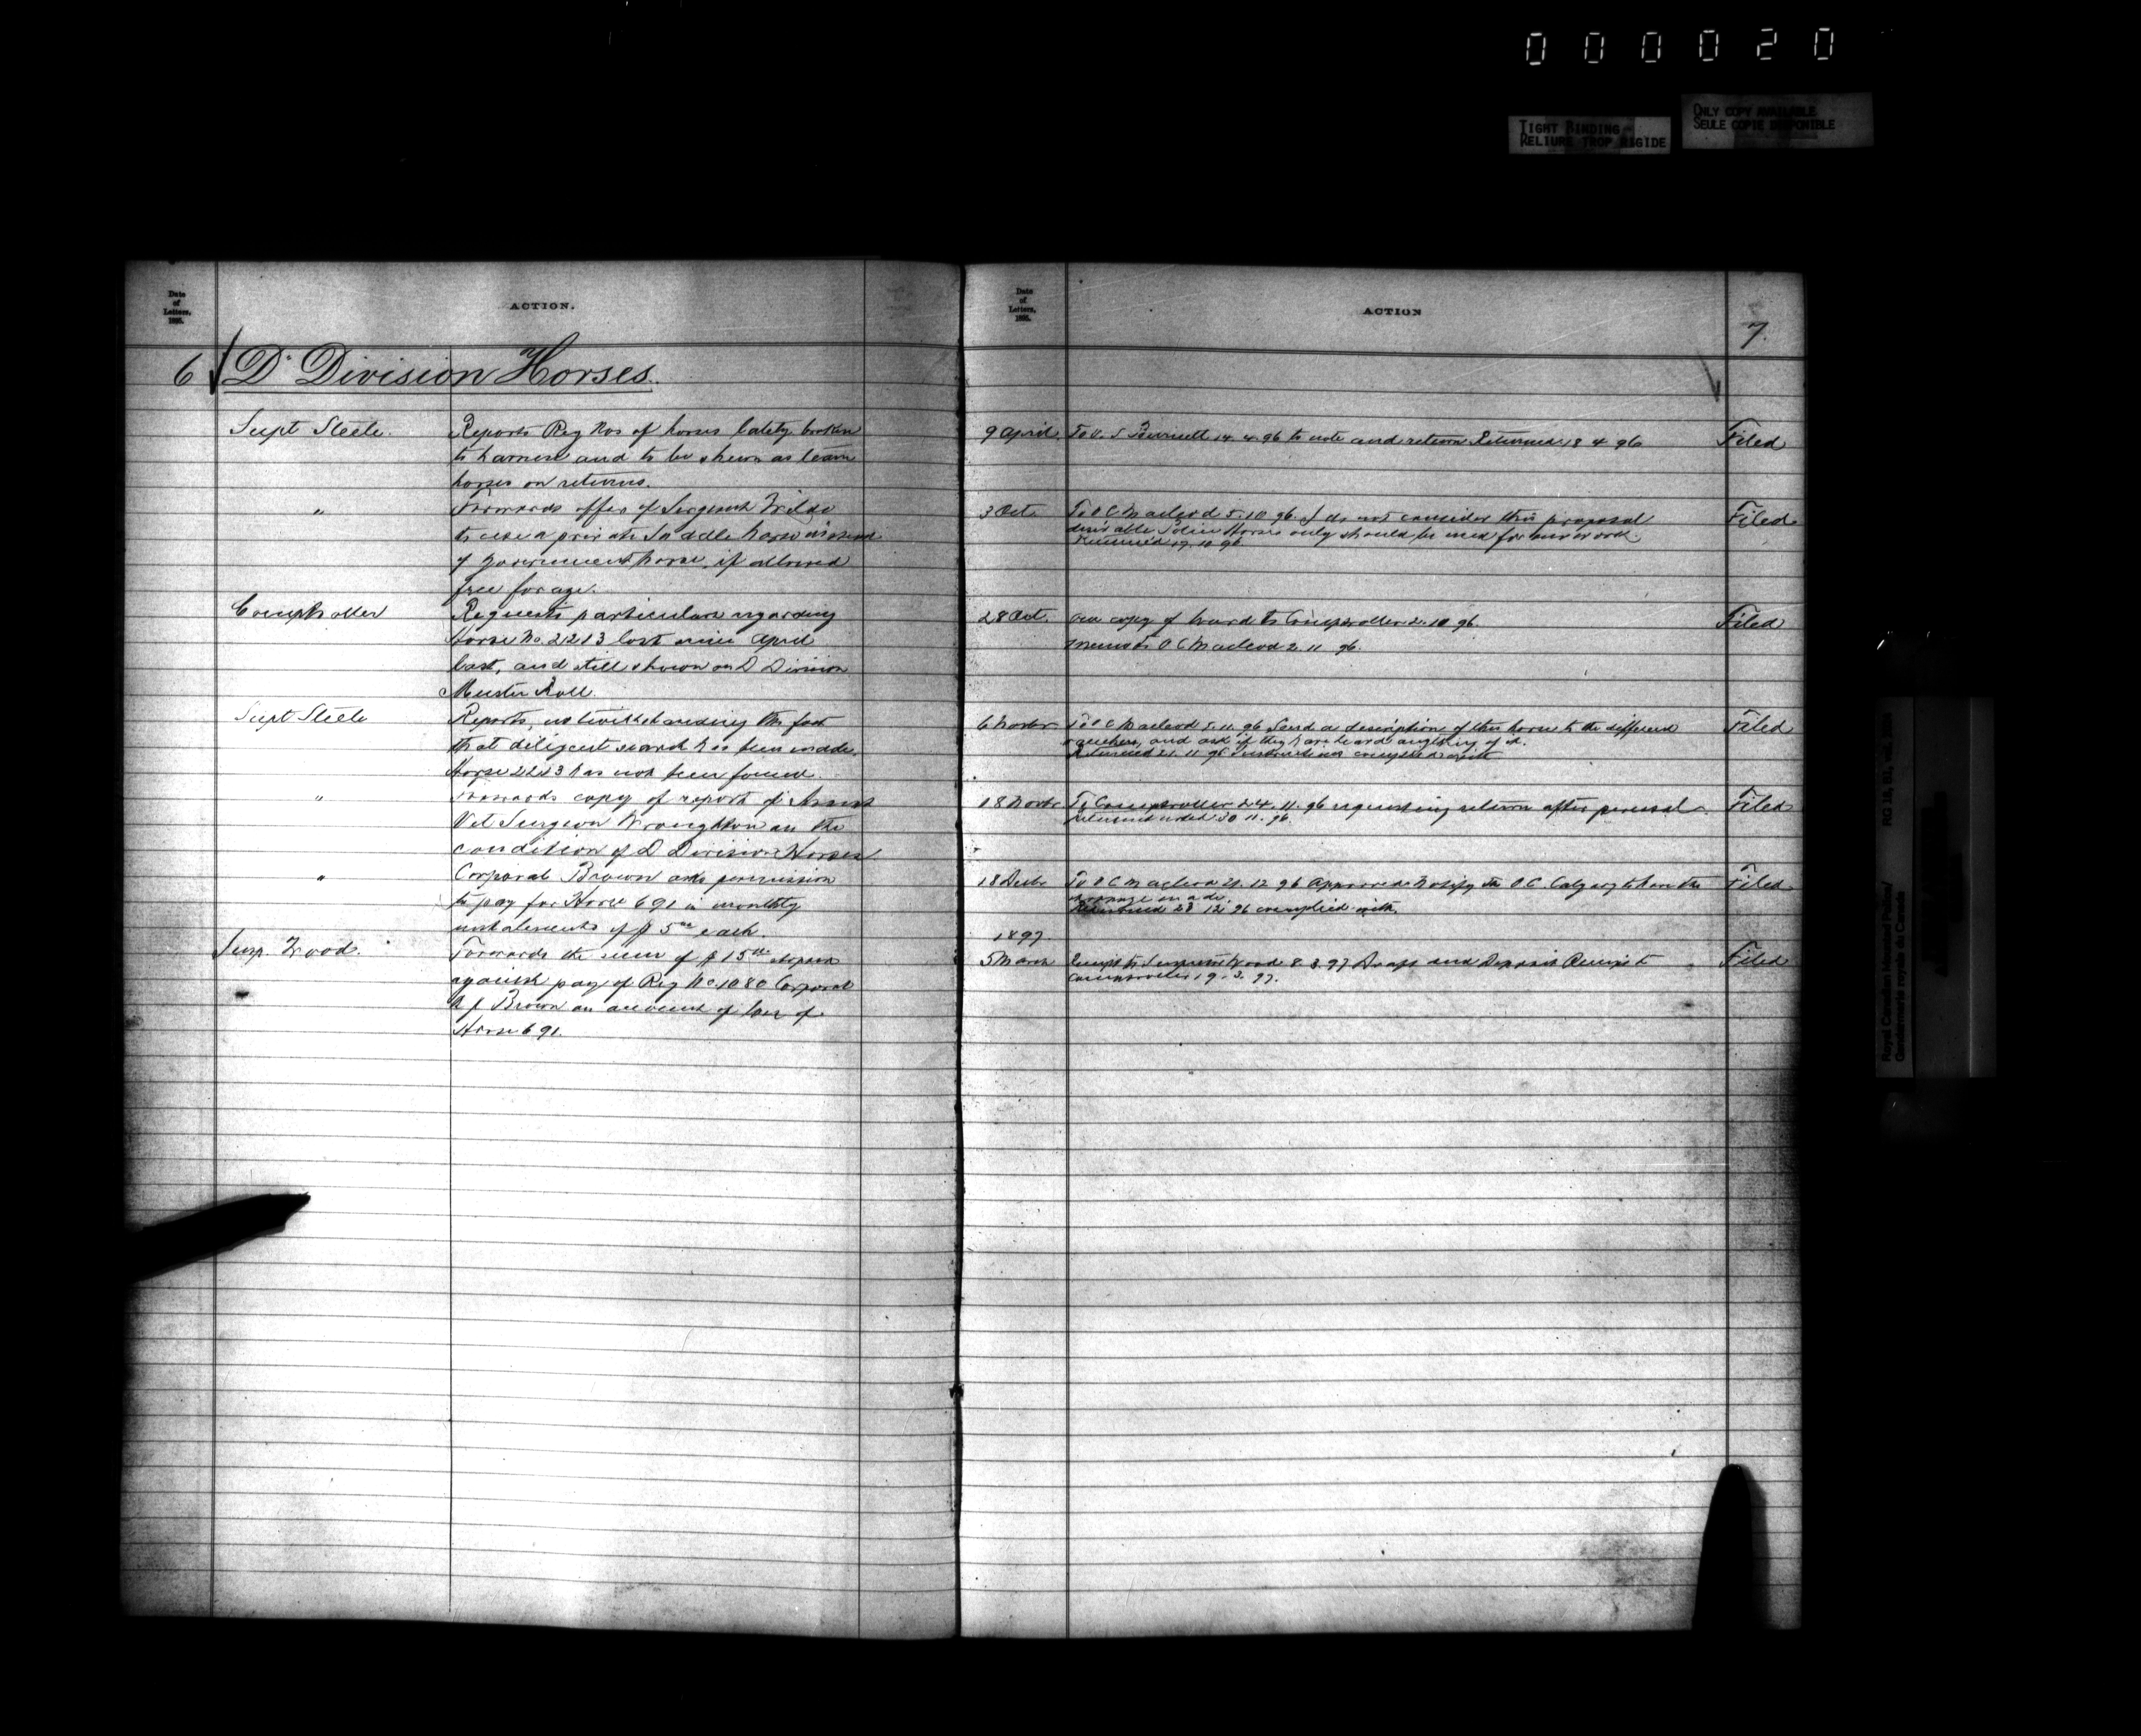 000020
TIGHT BINDING
RELIURE TROP RIGIDE
ONLY COPY AVAILABLE
SEULE COPIE DISPONIBLE
Date
of
Letters,
1895.
ACTION.
6 D. Division Horses.
Supt Steele. Reports Reg Nos of horses lately broken
to harness and to be shewn as team
horses on returns.
" Forwards offer of Sergeant Wilde
to use a private Saddle horse instead
of government horse, if allowed
free forage.
Comptroller Requests particulars regarding
Horse No. 2213 lost since April
last, and still shewn on D Division
Muster Roll.
Supt Steele Reports, notwithstanding the fact
that diligent search has been made
Horse 2213 has not been found.
" Forwards copy of report of Assist
Vet Surgeon Wroughton on the
condition of D Division Horses
" Corporal Brown asks permission
to pay for Horse 691 in monthly
instalments of $5 00 each.
Insp. Wood. Forwards the sum of $15 00 stopped
against pay of Reg No. 1080 Corporal
Brown on account of loss of
Horse 691.
Date
of
Letters,
1895.
ACTION
7.
9 April. To V. S Burnett 14.4.96 to note and return Returned 18 4 96 Filed
3 Oct. To O C Macleod 5.10 96. I do not consider this proposal Filed
desirable Police Horses only should be used for our work.
Returned 17.10 96.
28 Oct. copy of board to Comptroller 2.10 96. Filed
Memo to O C Macleod 2.11 96.
6 Novbr To O C Macleod 5.11.96 Send a description of this horse to the different Filed
ranchers, and ask if they have heard anything of it.
Returned 21.11 96 Instructions complied with
18 Novbr To Comptroller 24.11.96 requesting return after perusal. Filed
Returned noted 30 11.96.
18 Decbr To O C Macleod 21.12 96 Approved. Notify the O C Calgary to have the Filed
made.
Returned 28 12 96 complied with.
1897.
5 March Receipt to Inspector Wood 8.3.97 Draft and Deposit Receipt to Filed
Comptroller 19.3.97.
Royal Canadian Mounted Police/
Gendarmerie royale du Canada
RG 18,